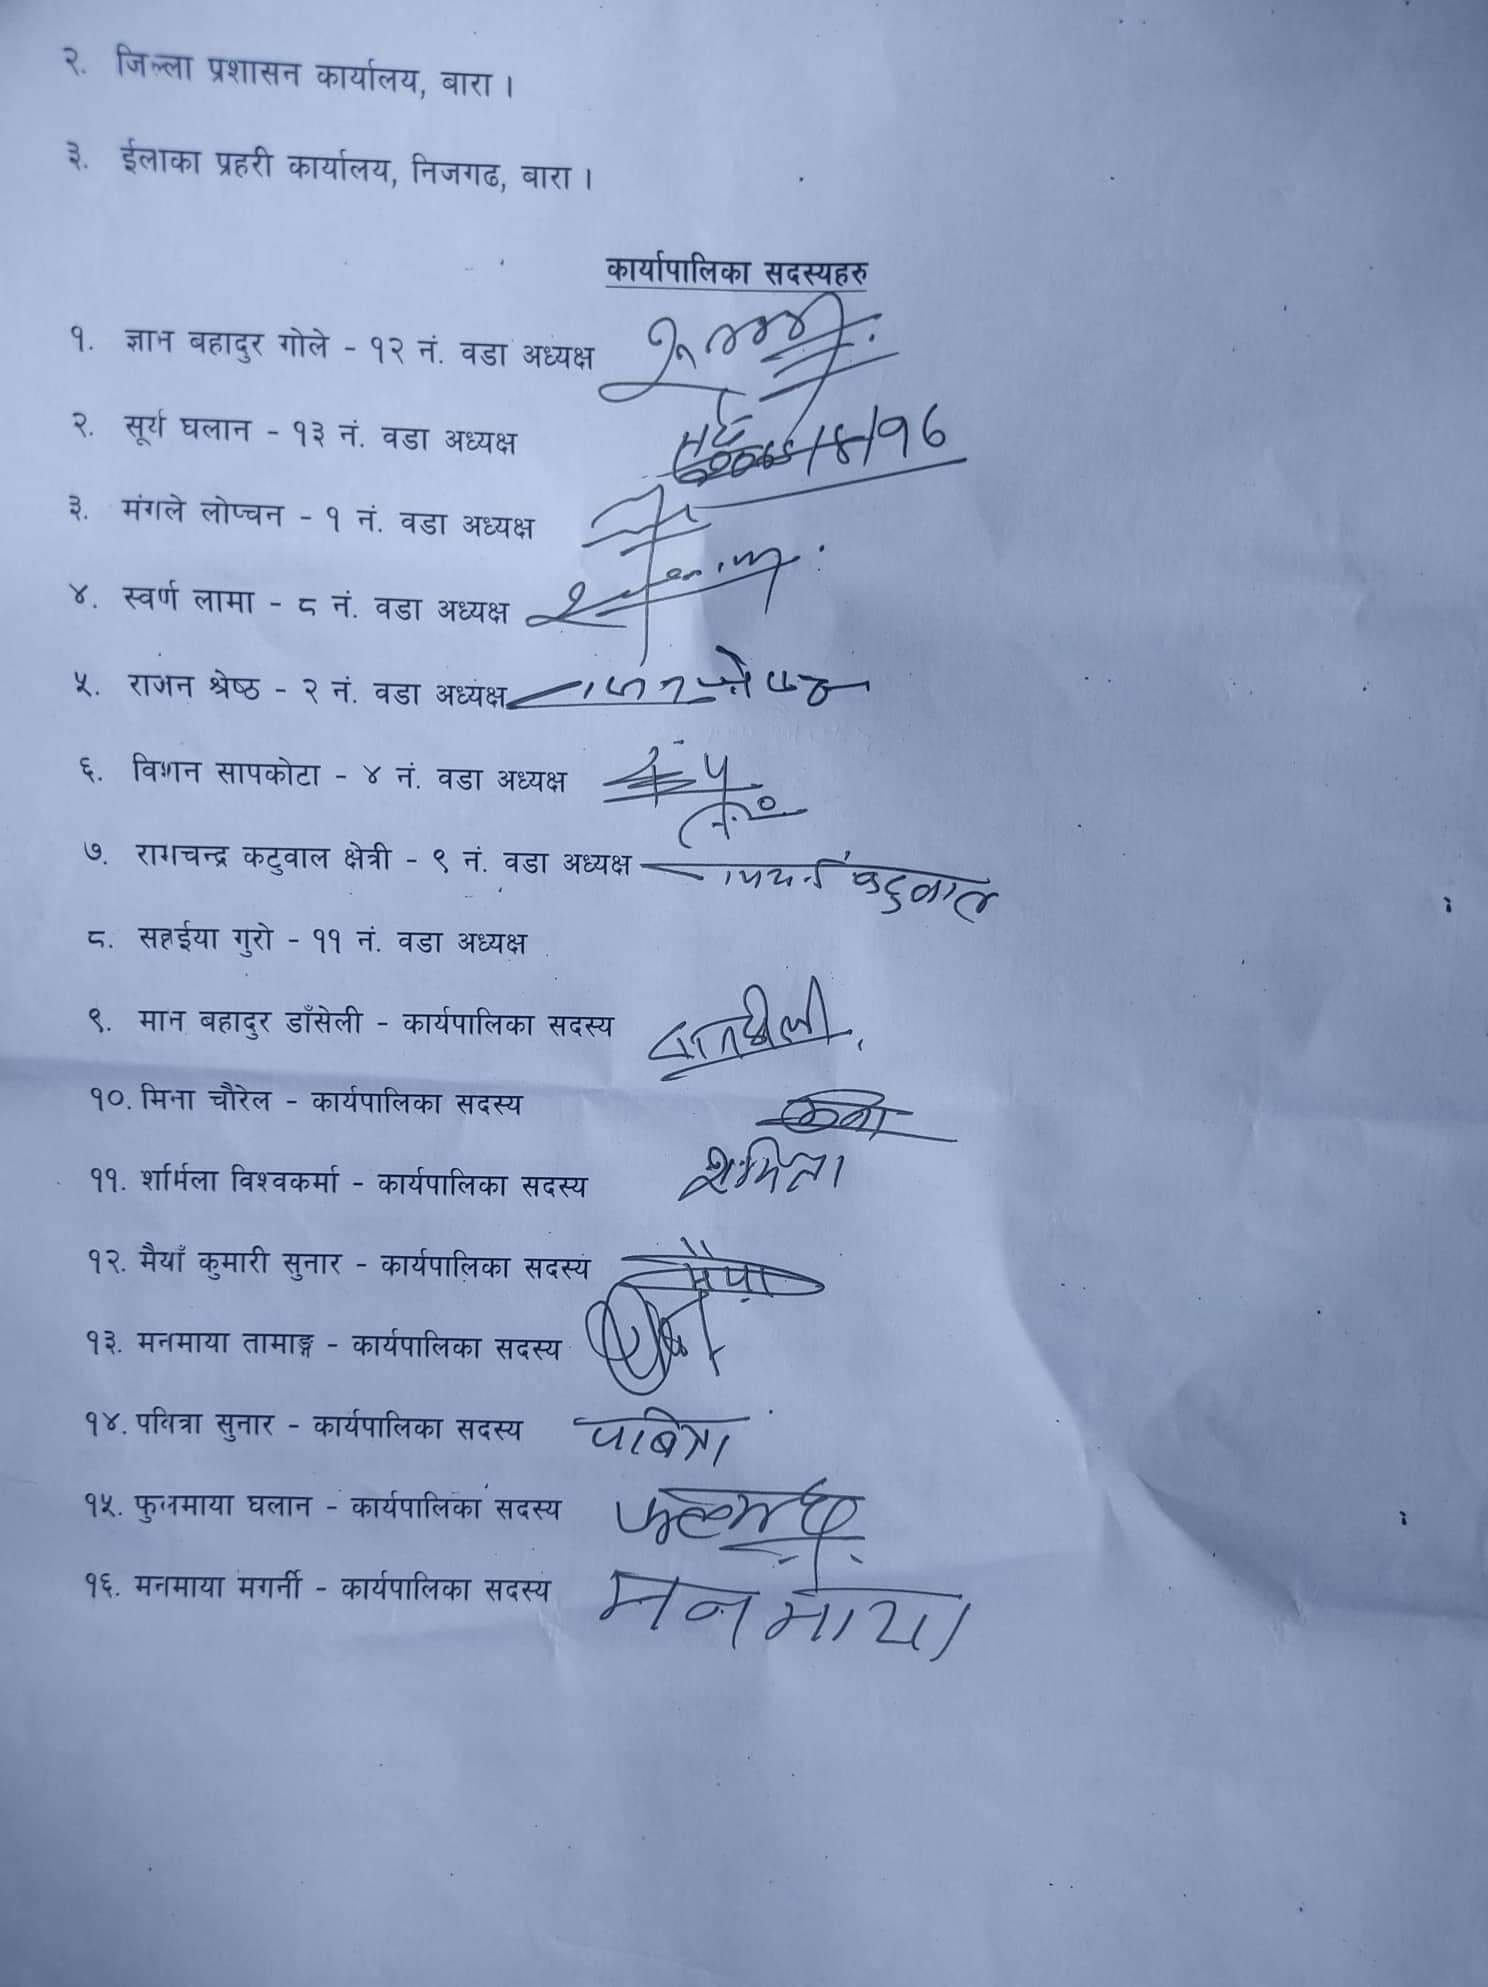 २. जिल्ला प्रशासन कार्यालय, बारा ।
३. ईलाका प्रहरी कार्यालय, निजगढ, बारा ।
कार्यापालिका सदस्यहरु
१. ज्ञान बहादुर गोले - १२ नं. वडा अध्यक्ष
२. सूर्य घलान - १३ नं. वडा अध्यक्ष
३. मंगले लोप्चन - १ नं. वडा अध्यक्ष
४. स्वर्ण लामा - ८ नं. वडा अध्यक्ष
५. राजन श्रेष्ठ - २ नं. वडा अध्यक्ष
६. विशन सापकोटा - ४ नं. वडा अध्यक्ष
७. रामचन्द्र कटुवाल क्षेत्री - ९ नं. वडा अध्यक्ष कटुवाल
८. गुरो - ११ नं. वडा अध्यक्ष
९. मान बहादुर डाँसेली - कार्यपालिका सदस्य
१०. मिना चौरेल - कार्यपालिका सदस्य
११. शर्मिला विश्वकर्मा - कार्यपालिका सदस्य
१२. मैयाँ कुमारी सुनार - कार्यपालिका सदस्य मैया
१३. मनमाया तामाङ्ग - कार्यपालिका सदस्य
१४. पवित्रा सुनार - कार्यपालिका सदस्य
१५. फुलमाया घलान - कार्यपालिका सदस्य
१६. मनमाया मगर्नी - कार्यपालिका सदस्य मनमाया